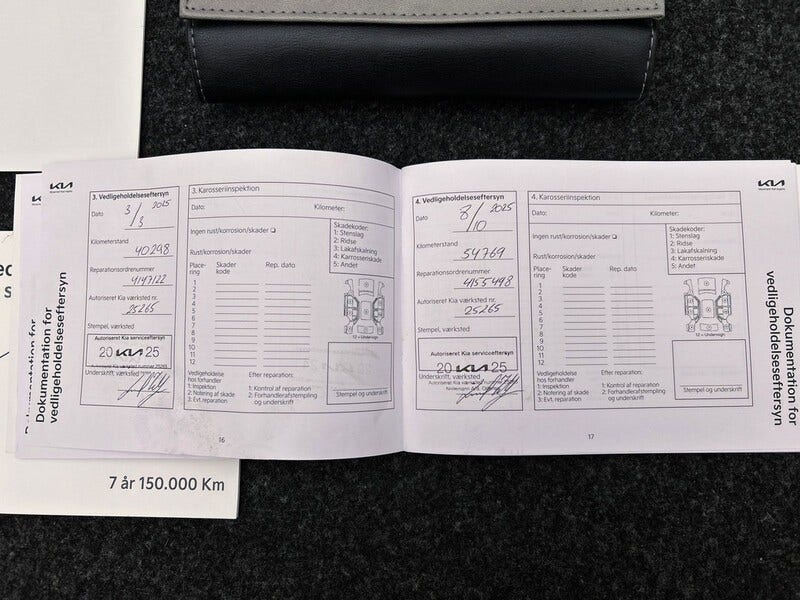 KIA
Dokumentation for
vedligeholdelseseftersyn
3. Vedligeholdelseseftersyn
Dato 3/3 2025
Kilometerstand
40298
Reparationsordrenummer
4147122
Autoriseret Kia værksted nr.
25265
Stempel, værksted
Autoriseret Kia serviceeftersyn
20 KIA 25
Underskrift, værksted
3. Karosseriinspektion
Dato:
Kilometer:
Ingen rust/korrosion/skader
Rust/korrosion/skader:
Place-
ring
Skader
kode
Rep. dato
1
2
3
4
5
6
7
8
9
10
11
12
Skadekoder:
1: Stenslag
2: Ridse
3: Lakafskalning
4: Karrosseriskade
5: Andet
12 = Undervogn
Vedligeholdelse
hos forhandler
1: Inspektion
2: Notering af skade
3: Evt. reparation
Efter reparation:
1: Kontrol af reparation
2: Forhandlerafstempling
og underskrift
Stempel og underskrift
16
4. Vedligeholdelseseftersyn
Dato 8/10 2025
Kilometerstand
54769
Reparationsordrenummer
4155498
Autoriseret Kia værksted nr.
25265
Stempel, værksted
Autoriseret Kia serviceeftersyn
20 KIA 25
Underskrift, værksted
4. Karosseriinspektion
Dato:
Kilometer:
Ingen rust/korrosion/skader
Rust/korrosion/skader:
Place-
ring
Skader
kode
Rep. dato
1
2
3
4
5
6
7
8
9
10
11
12
Skadekoder:
1: Stenslag
2: Ridse
3: Lakafskalning
4: Karrosseriskade
5: Andet
12 = Undervogn
Vedligeholdelse
hos forhandler
1: Inspektion
2: Notering af skade
3: Evt. reparation
Efter reparation:
1: Kontrol af reparation
2: Forhandlerafstempling
og underskrift
Stempel og underskrift
17
KIA
Dokumentation for
vedligeholdelseseftersyn
7 år 150.000 Km